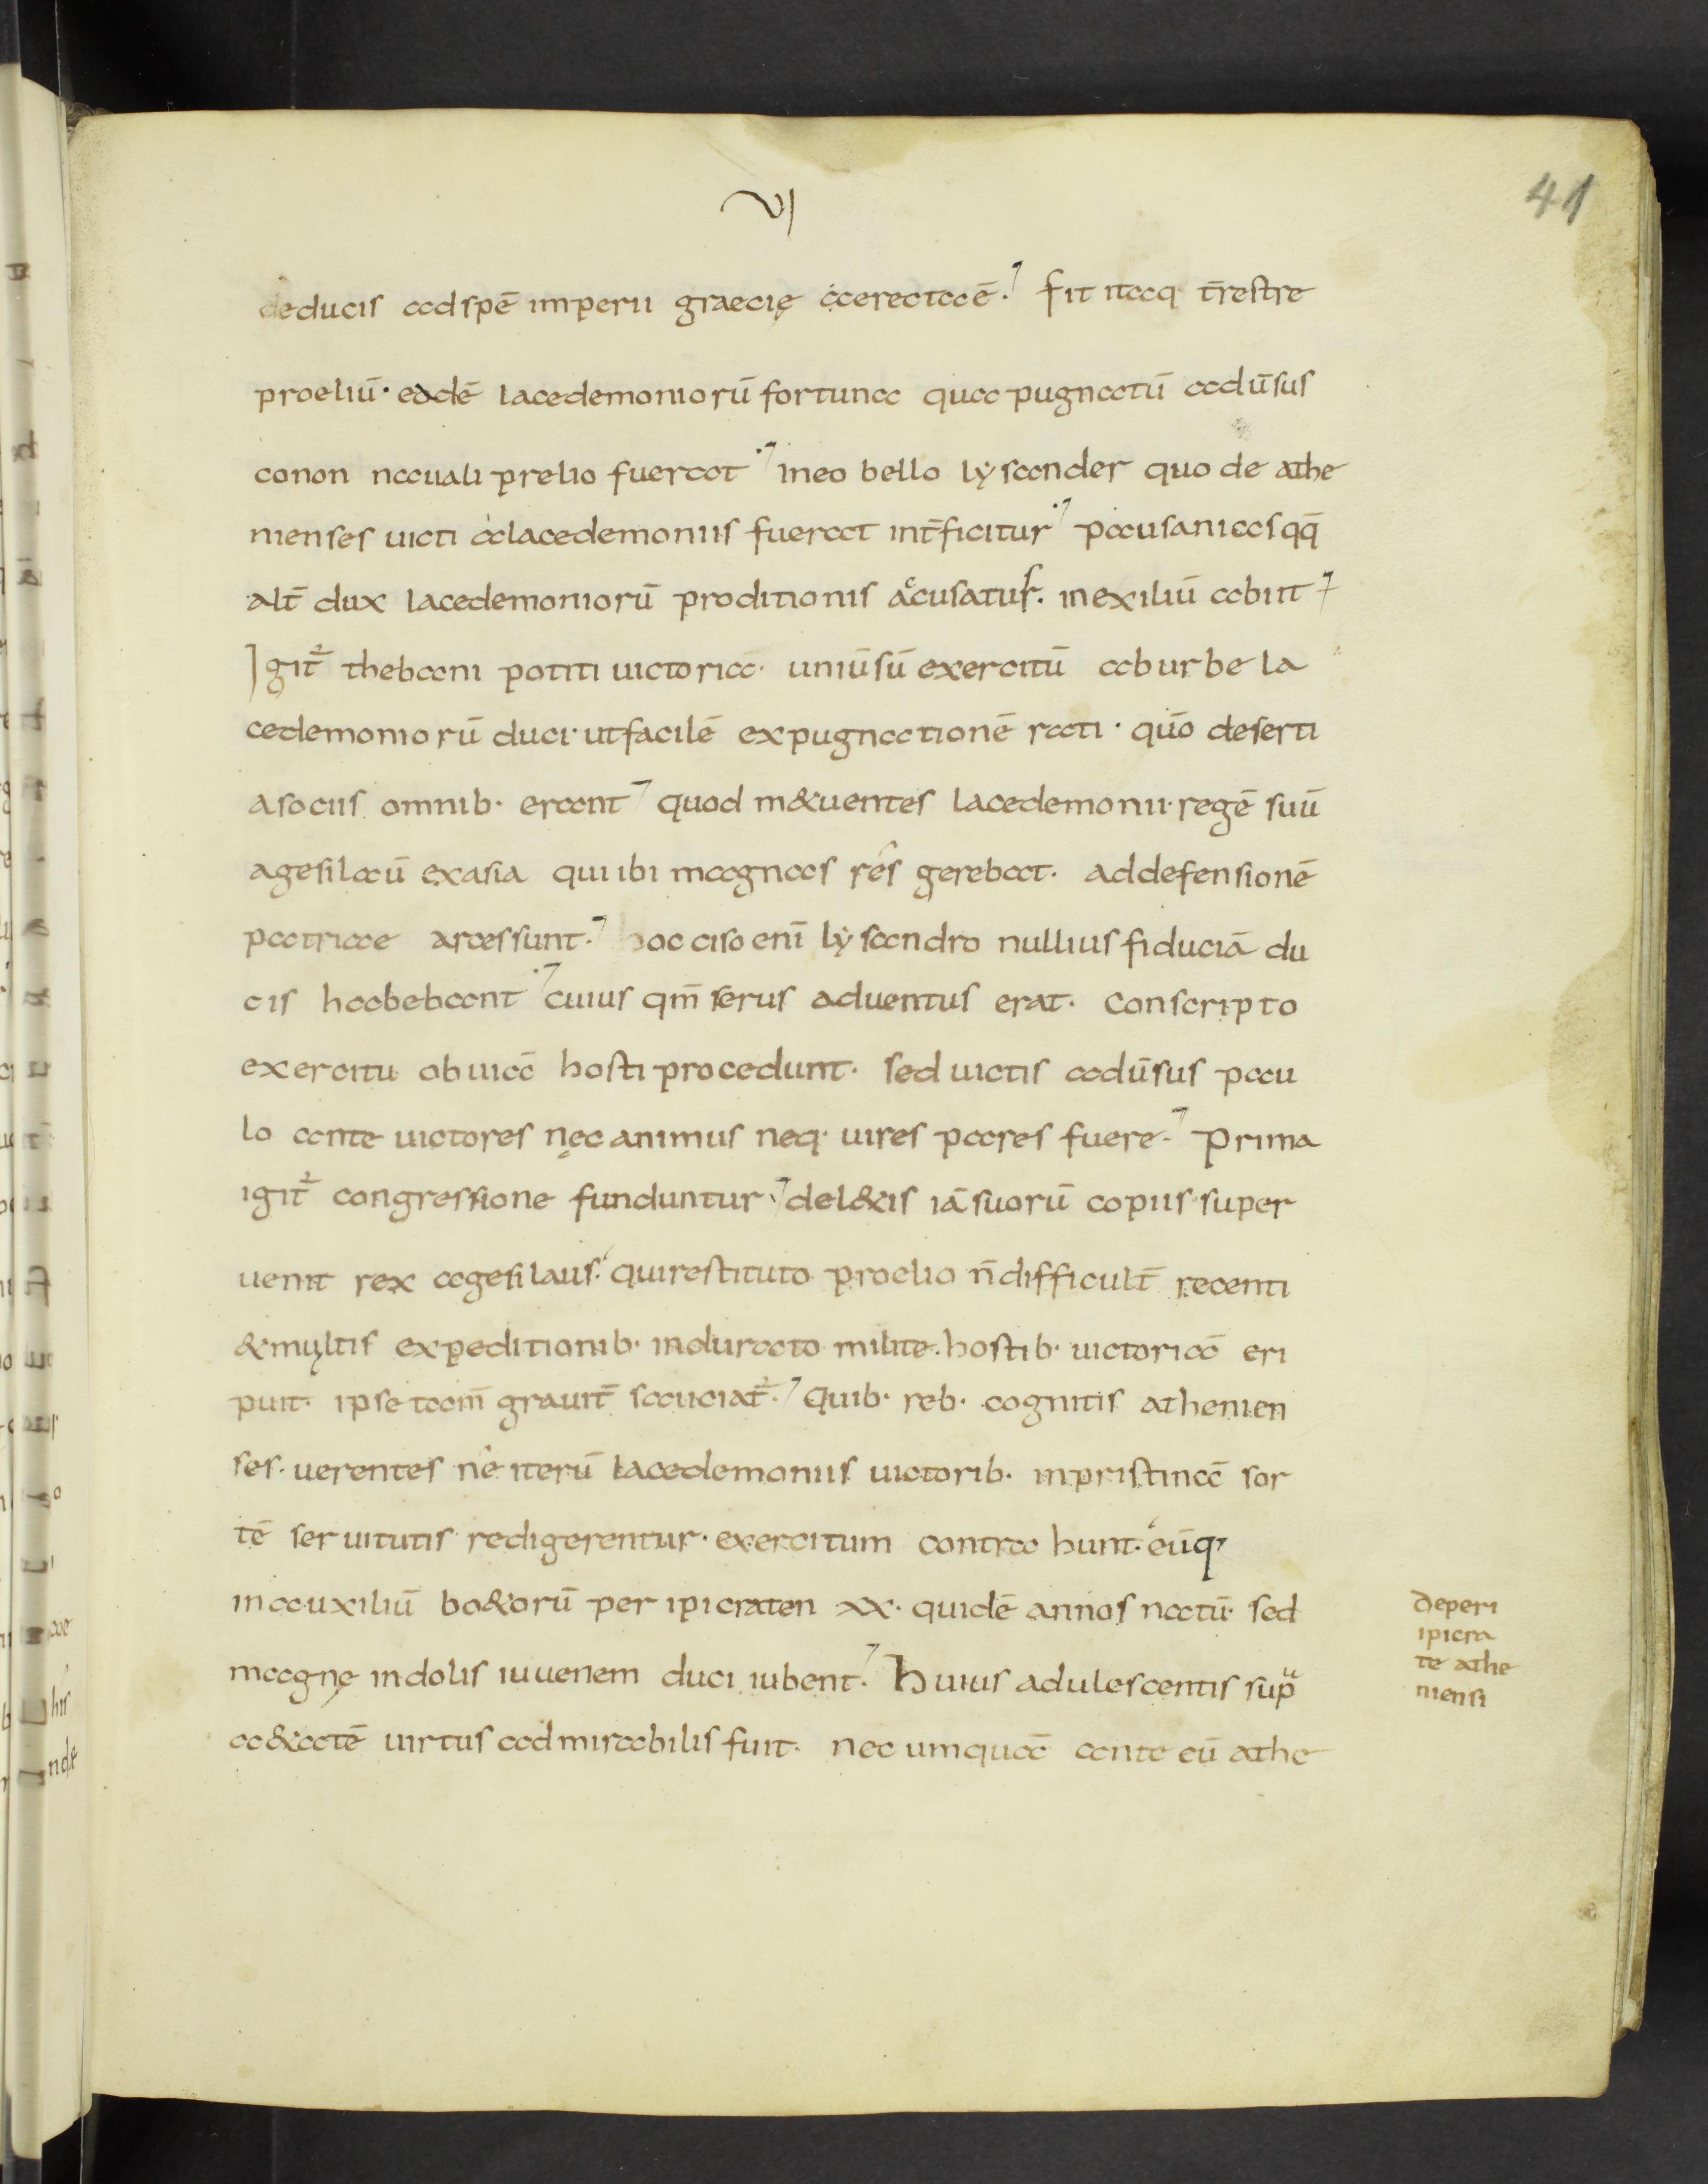 VI
41
deducis adspē imperii graecię acerectaē. Fit itaq. t̄restre
proeliū. eadē lacedemoniorū fortuna qua pugnatū adūsus
conon nauali prelio fuerat. Ineo bello lẏsander quo de athe
nienses uicti alacedemoniis fuerat int̄ficitur. pausanias qq̄
alt̄ dux lacedemoniorū proditionis acusatus. in exiliū abiit
Igit᷑ thebani potiti uictoria. uniūsū exercitū ab urbe la
cedemoniorū duci. ut facilē expugnationē rati. qūo deserti
a sociis omnib. erant quod m&uentes lacedemonii. regē suū
agesilaū exasia qui ibi magnas rēs gerebat. ad defensionē
patriae arcessunt. hoc ciso enī lẏsandro nullius fiduciā du
cis habebant cuius qm̄ serus aduentus erat. Conscripto
exercitu obuiā hosti procedunt. sed uictis adūsus pau
lo ante uictores nęc animus neq. uires pares fuere. Prima
igit᷑ congressione funduntur, del&is iā suorū copiis super
uenit rex agesilaus. qui restituto proelio n̄ difficult̄ recenti
& multis expeditionib. indurato milite. hostib. uictoriā eri
puit. ipse tam̄ grauit̄ sauciat᷑. Quib. reb. cognitis athenien
ses. uerentes nē iterū lacedemoniis uictorib. in pristinā sor
tē seruitutis redigerentur. exercitum contrahunt. eūq.
in auxiliū bo&orū per ipicraten xx. quidē annos natū. sed
magnę indolis iuuenem duci iubent. Huius adulescentis sup̄
a&atē uirtus admirabilis fuit. nec umquā ante eū athe
deperi
ipicra
te athe
niensi